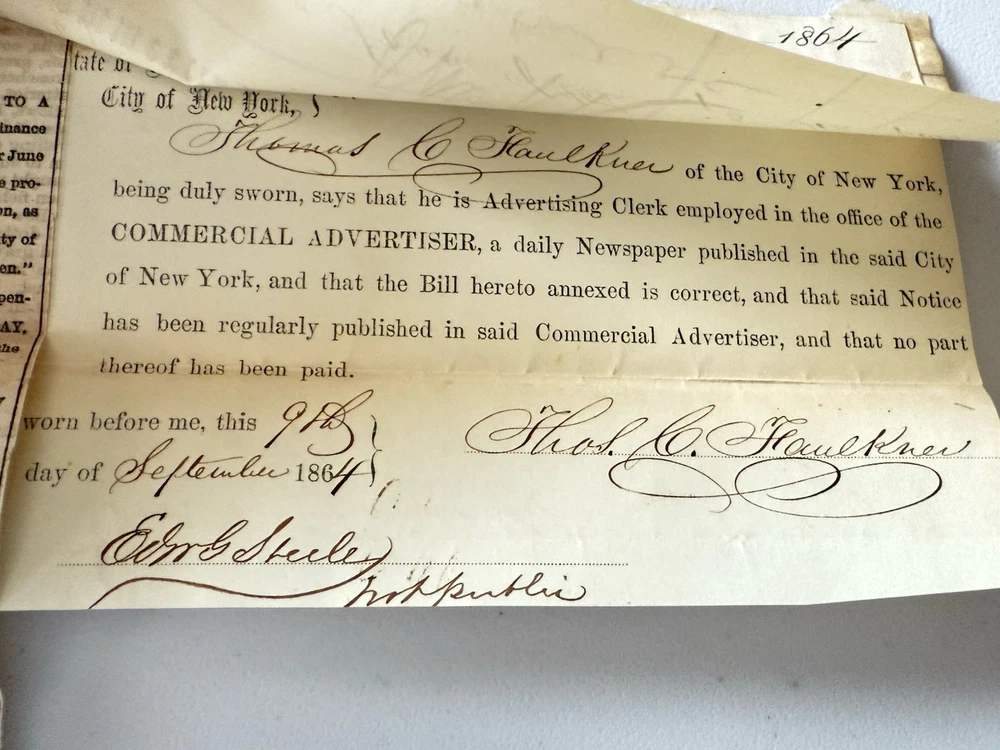 1864
tate of
City of New York,
Thomas C Faulkner of the City of New York,
being duly sworn, says that he is Advertising Clerk employed in the office of the
COMMERCIAL ADVERTISER, a daily Newspaper published in the said City
of New York, and that the Bill hereto annexed is correct, and that said Notice
has been regularly published in said Commercial Advertiser, and that no part
thereof has been paid.
worn before me, this 9th
day of September 1864
Thos. C. Faulkner
Edw G Steele
Not Public
TO A
inance
r June
e pro-
on, as
ty of
en."
pen-
AY,
the